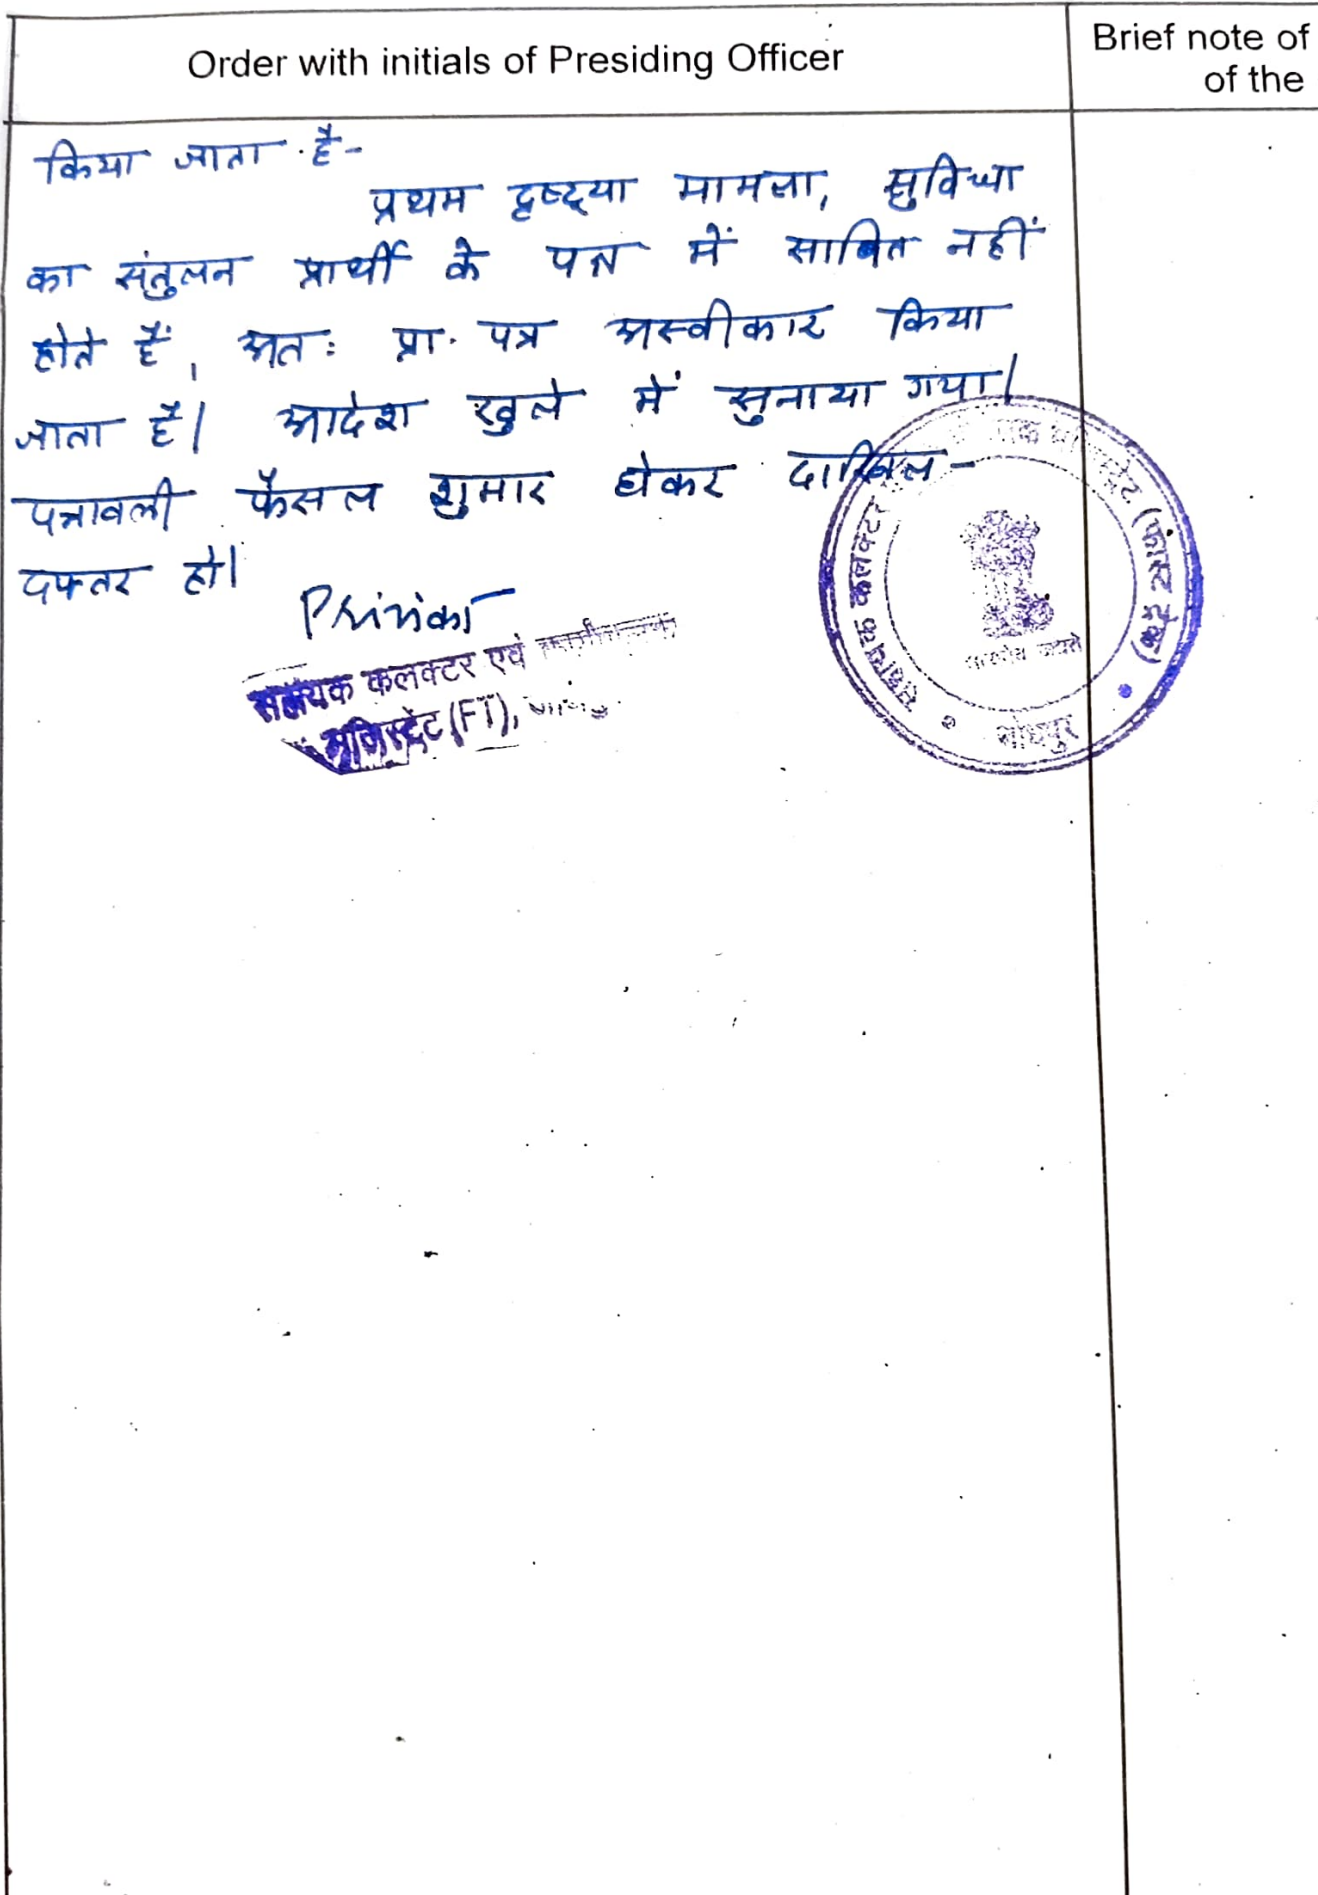 Order with initials of Presiding Officer
Brief note of
of the
किया जाता है-
प्रथम दृष्ट्या मामला, सुविधा
का संतुलन प्रार्थी के पक्ष में साबित नहीं
होते हैं, अतः प्रा. पत्र अस्वीकार किया
जाता है। आदेश खुले में सुनाया गया।
पत्रावली फैसल शुमार होकर दाखिल-
दफ्तर हो।
सहायक कलक्टर एवं
मजिस्ट्रेट (FT),
सहायक कलक्टर
(फास्ट ट्रेक)
जोधपुर